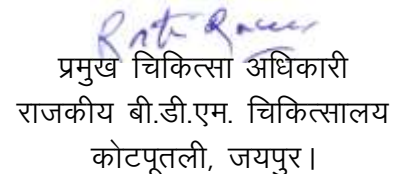 प्रमुख चिकित्सा अधिकारी
राजकीय बी.डी.एम. चिकित्सालय
कोटपूतली, जयपुर।